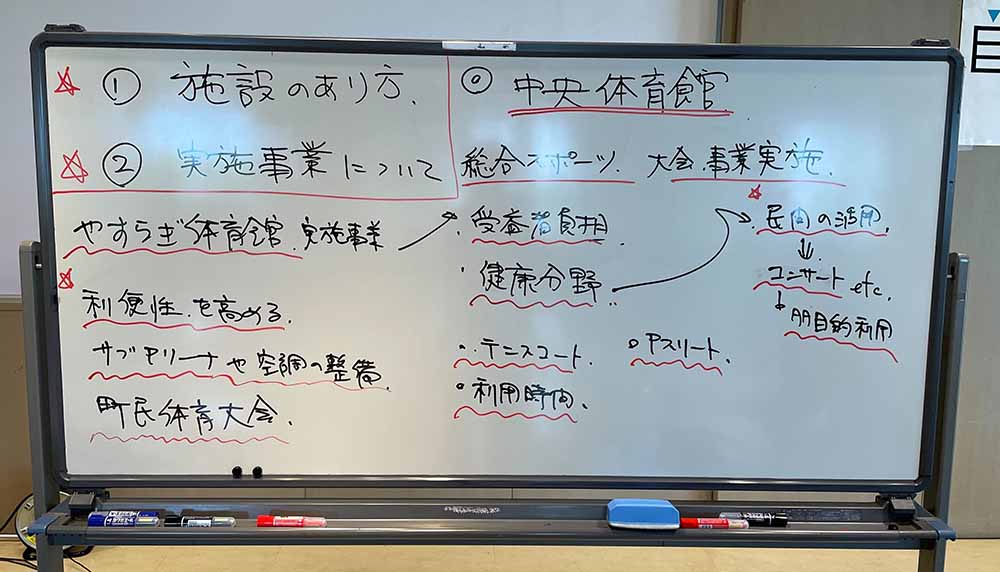 ☆ ① 施設のあり方.
☆ ② 実施事業について
やすらぎ体育館.実施事業
☆
利便性を高める.
サブアリーナや空調の整備.
町民体育大会.
◎ 中央体育館
総合スポーツ. 大会.事業実施.
・受益者負担
・健康分野.
・テニスコート. ・アスリート.
・利用時間.
☆
・民間の活用.
↓
コンサート etc.
目的利用
自